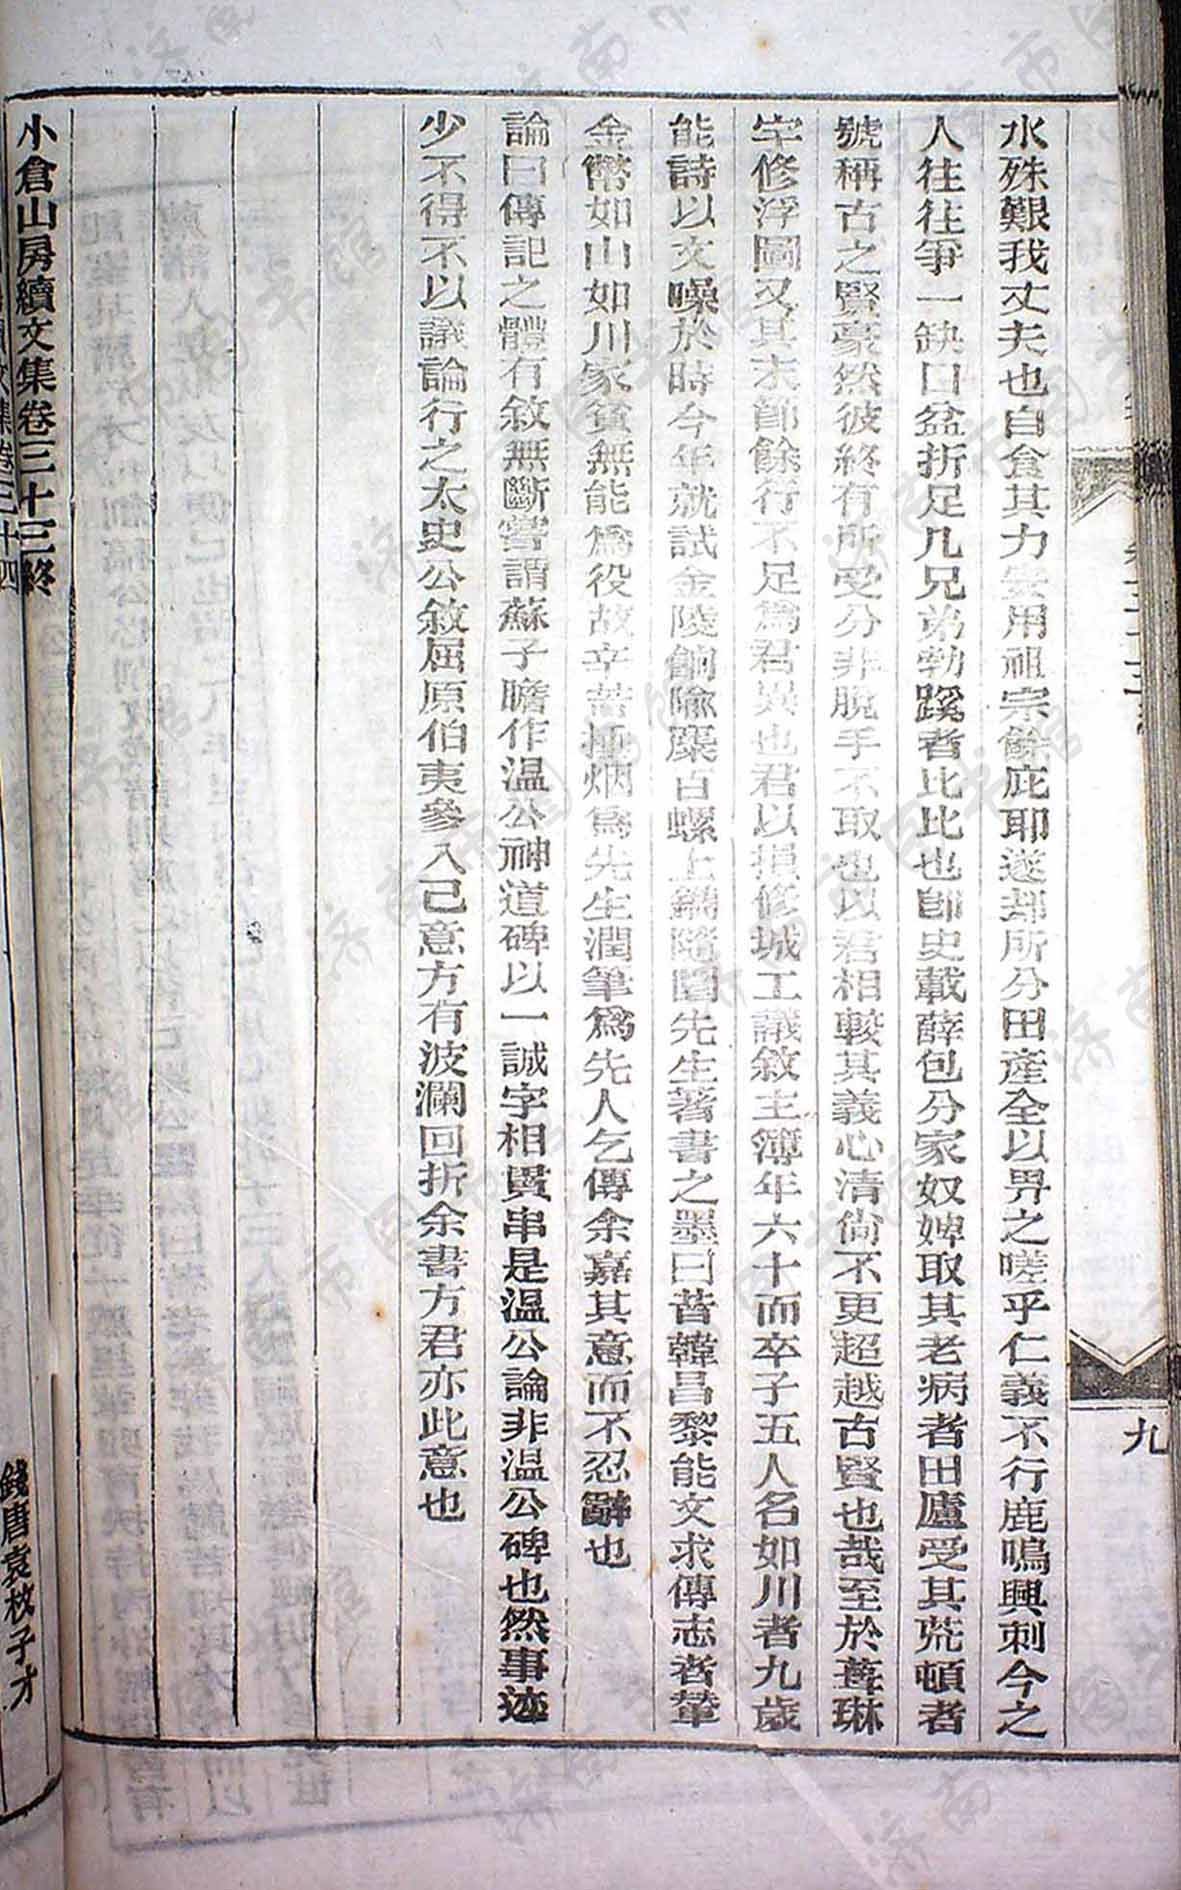 水殊艱我丈夫也自食其力安用祖宗餘庇耶遂却所分田產全以畀之嗟乎仁義不行鹿鳴興刺今之
人往往爭一缺口盆折足几兄弟勃蹊者比比也卽史載薛包分家奴婢取其老病者田廬受其荒頓者
號稱古之賢豪然彼終有所受分非脫手不取也以君相較其義心清尙不更超越古賢也哉至於葺琳
宇修浮圖又其末節餘行不足爲君異也君以損修城工議敘主簿年六十而卒子五人名如川者九歲
能詩以文噪於時今年就試金陵餉隃麋百螺上鐫隨園先生著書之墨曰昔韓昌黎能文求傳志者輦
金幣如山如川家貧無能爲役故辛苦捶烟爲先生潤筆爲先人乞傳余嘉其意而不忍辭也
論曰傳記之體有敘無斷嘗謂蘇子瞻作溫公神道碑以一誠字相貫串是溫公論非溫公碑也然事迹
少不得不以議論行之太史公敘屈原伯夷參入己意方有波瀾回折余書方君亦此意也
小倉山房續文集卷三十三終
九
集卷三十四
錢唐袁枚子才